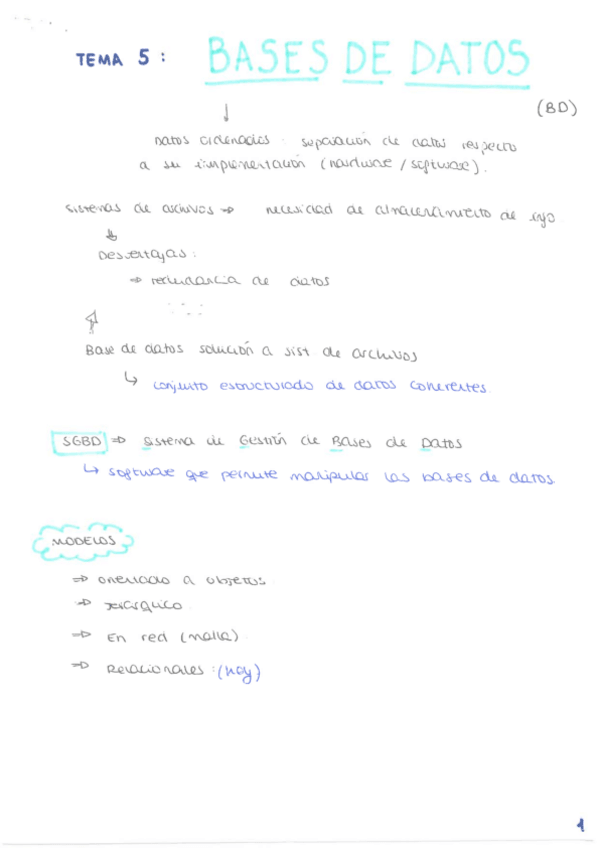 TEMA 5 : BASES DE DATOS
(BD)
↓
Datos ordenados : separación de datos respecto
a su implementación (hardware / software).
Sistemas de archivos ⇒ necesidad de almacenamiento de
↓
Desventajas :
⇒ redundancia de datos
⇑
Base de datos solución a sist. de archivos
↳ conjunto estructurado de datos coherentes
SGBD ⇒ Sistema de Gestión de Bases de Datos
↳ software que permite manipular las bases de datos
MODELOS
⇒ orientado a objetos
⇒ Jerárquico
⇒ En red (malla)
⇒ Relacionales : (hoy)
1